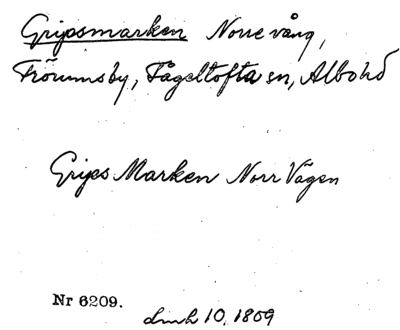 Gripsmarken Norrevång,
Frörumsby, Fågeltofta sn, Albo hd
Grips Marken Norr Vågen
Nr 6209.
Lmh 10, 1809